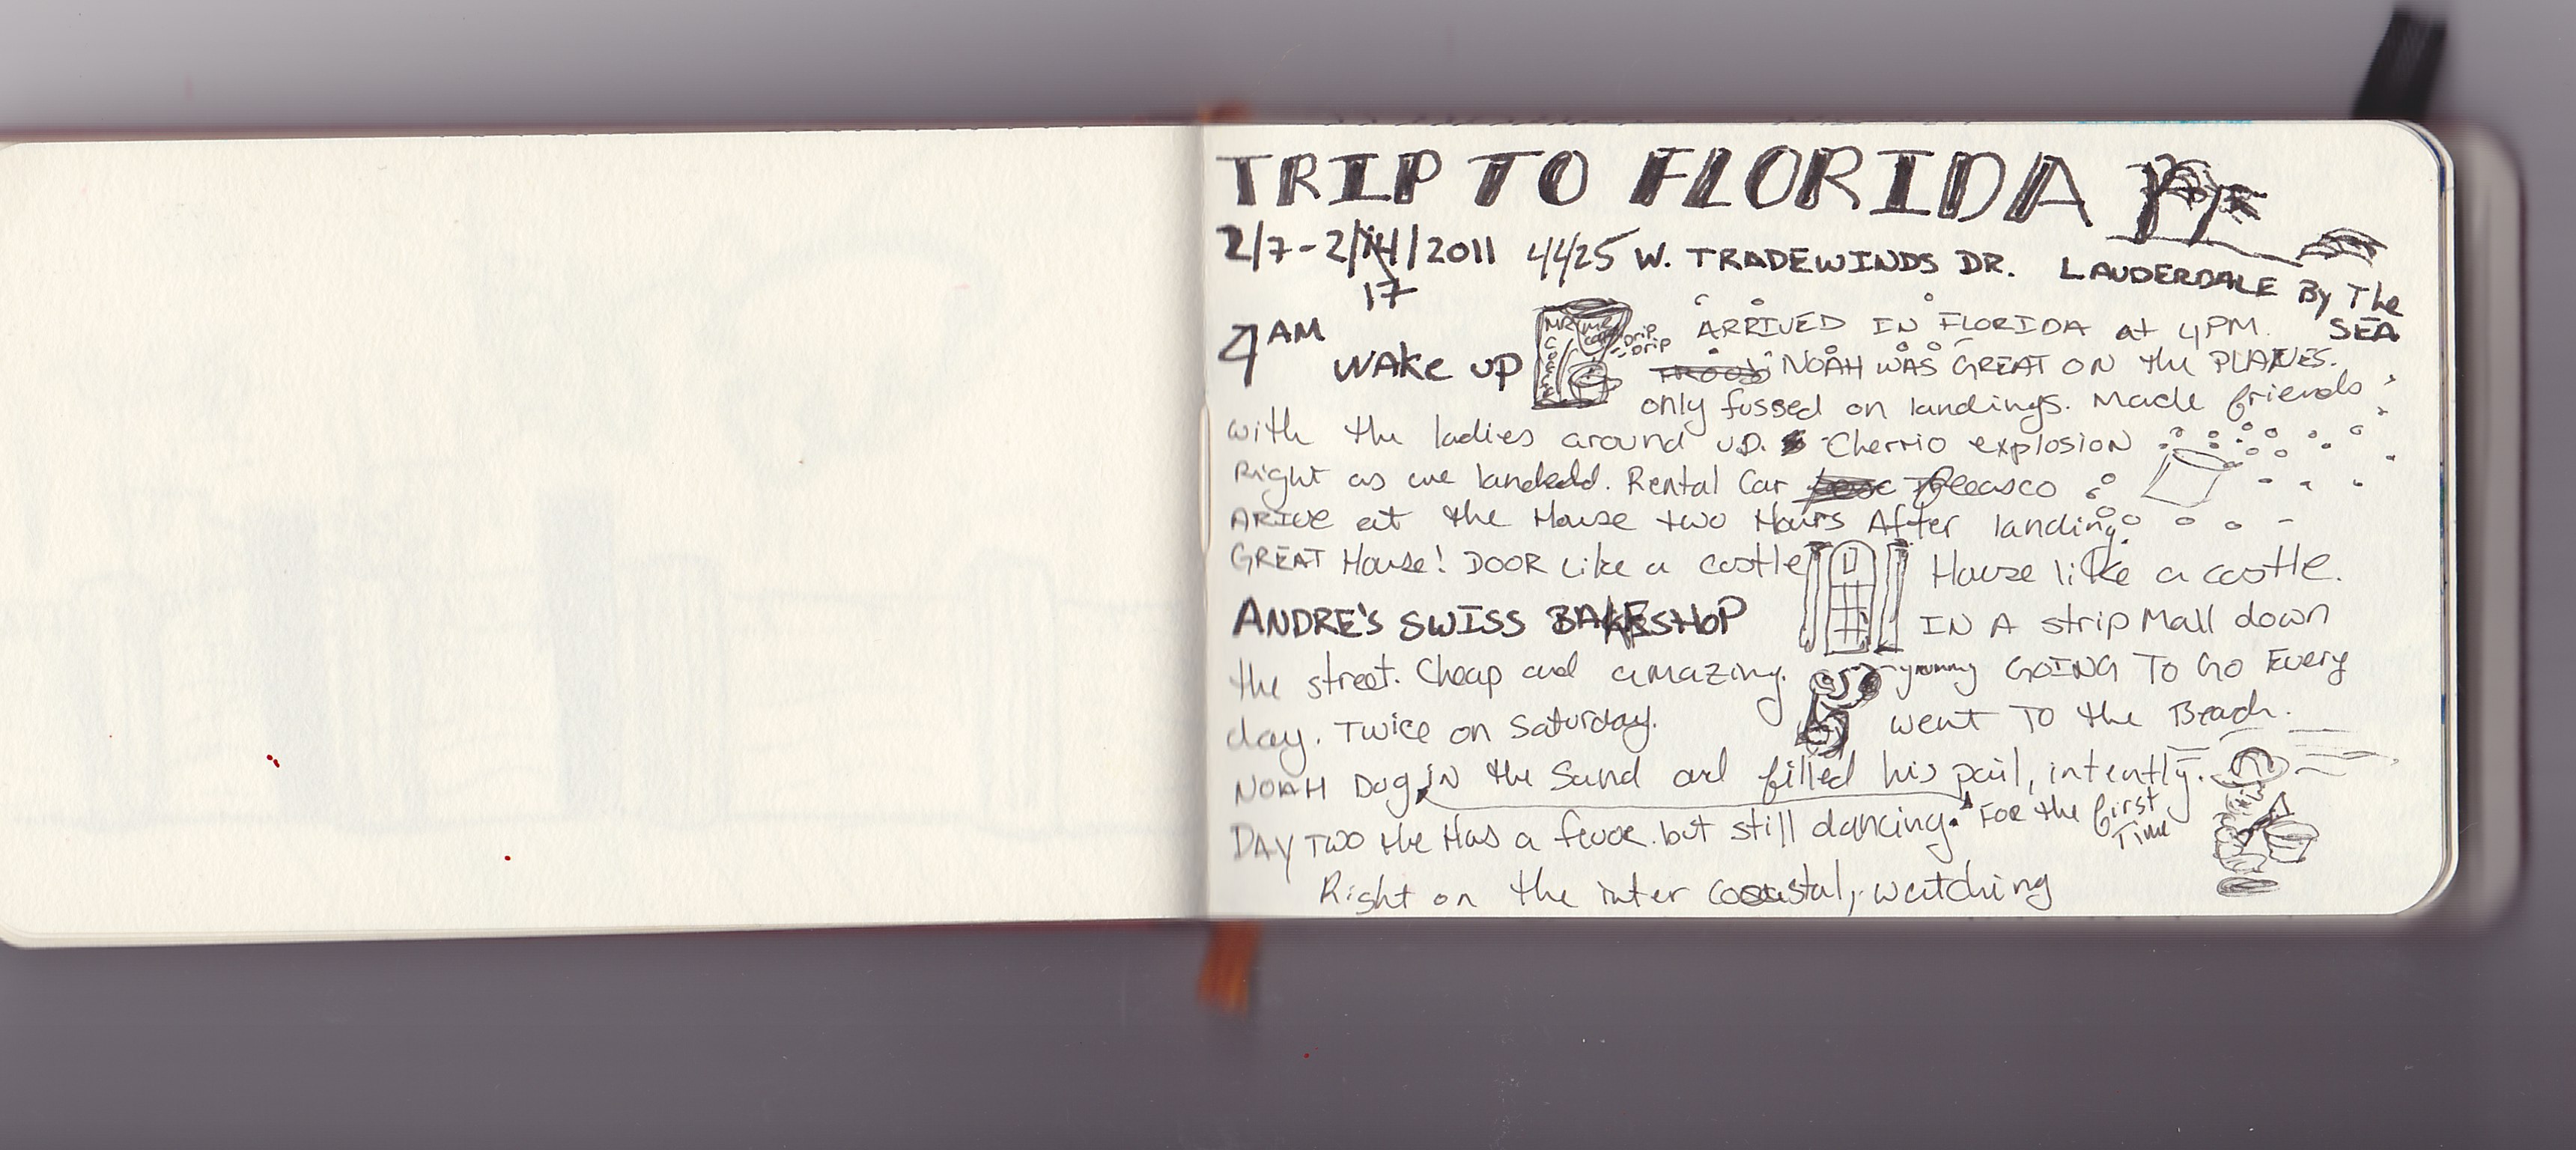 TRIP TO FLORIDA
2/7 - 2/14/2011 4425 W. TRADEWINDS DR. LAUDERDALE By The
17 SEA
4 AM WAKE UP MR COFFEE MR COFFEE Drip Drip ARRIVED IN FLORIDA at 4PM.
NOAH WAS GREAT ON the PLANES.
only fussed on landings. Made friends
with the ladies around us. Cherrio explosion
Right as we landedd. Rental Car
ARIVE at the House two Hours After landing.
GREAT House! DOOR Like a castle House like a castle.
ANDRE'S SWISS BAKESHOP IN A strip Mall down
the street. Cheap and amazing. yummy GOING TO GO Every
day. Twice on Saturday. went TO the Beach.
NOAH Dug in the Sand and filled his pail, intently.
For the first
Time
DAY TWO He Has a fever. but still dancing.
Right on the inter coastal, watching